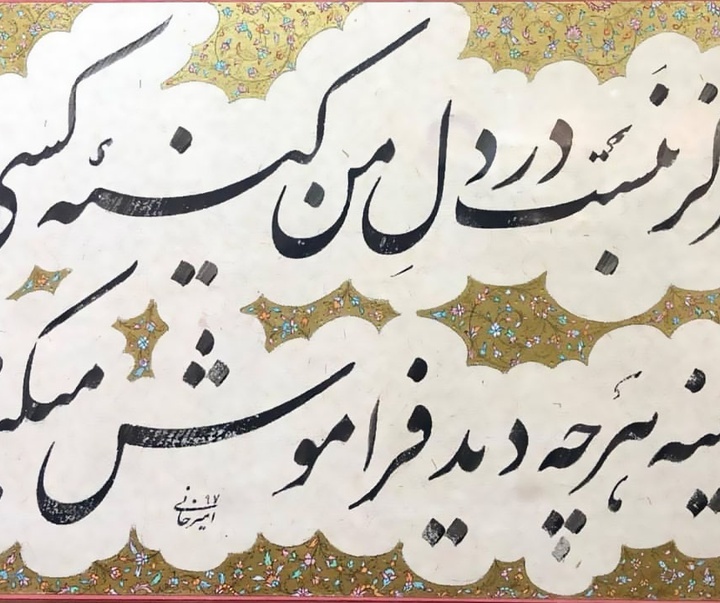 رگز نبست در دل من کینهٔ کسی
ینه هرچه دید فراموش میکن
امیرخانی ۹۷